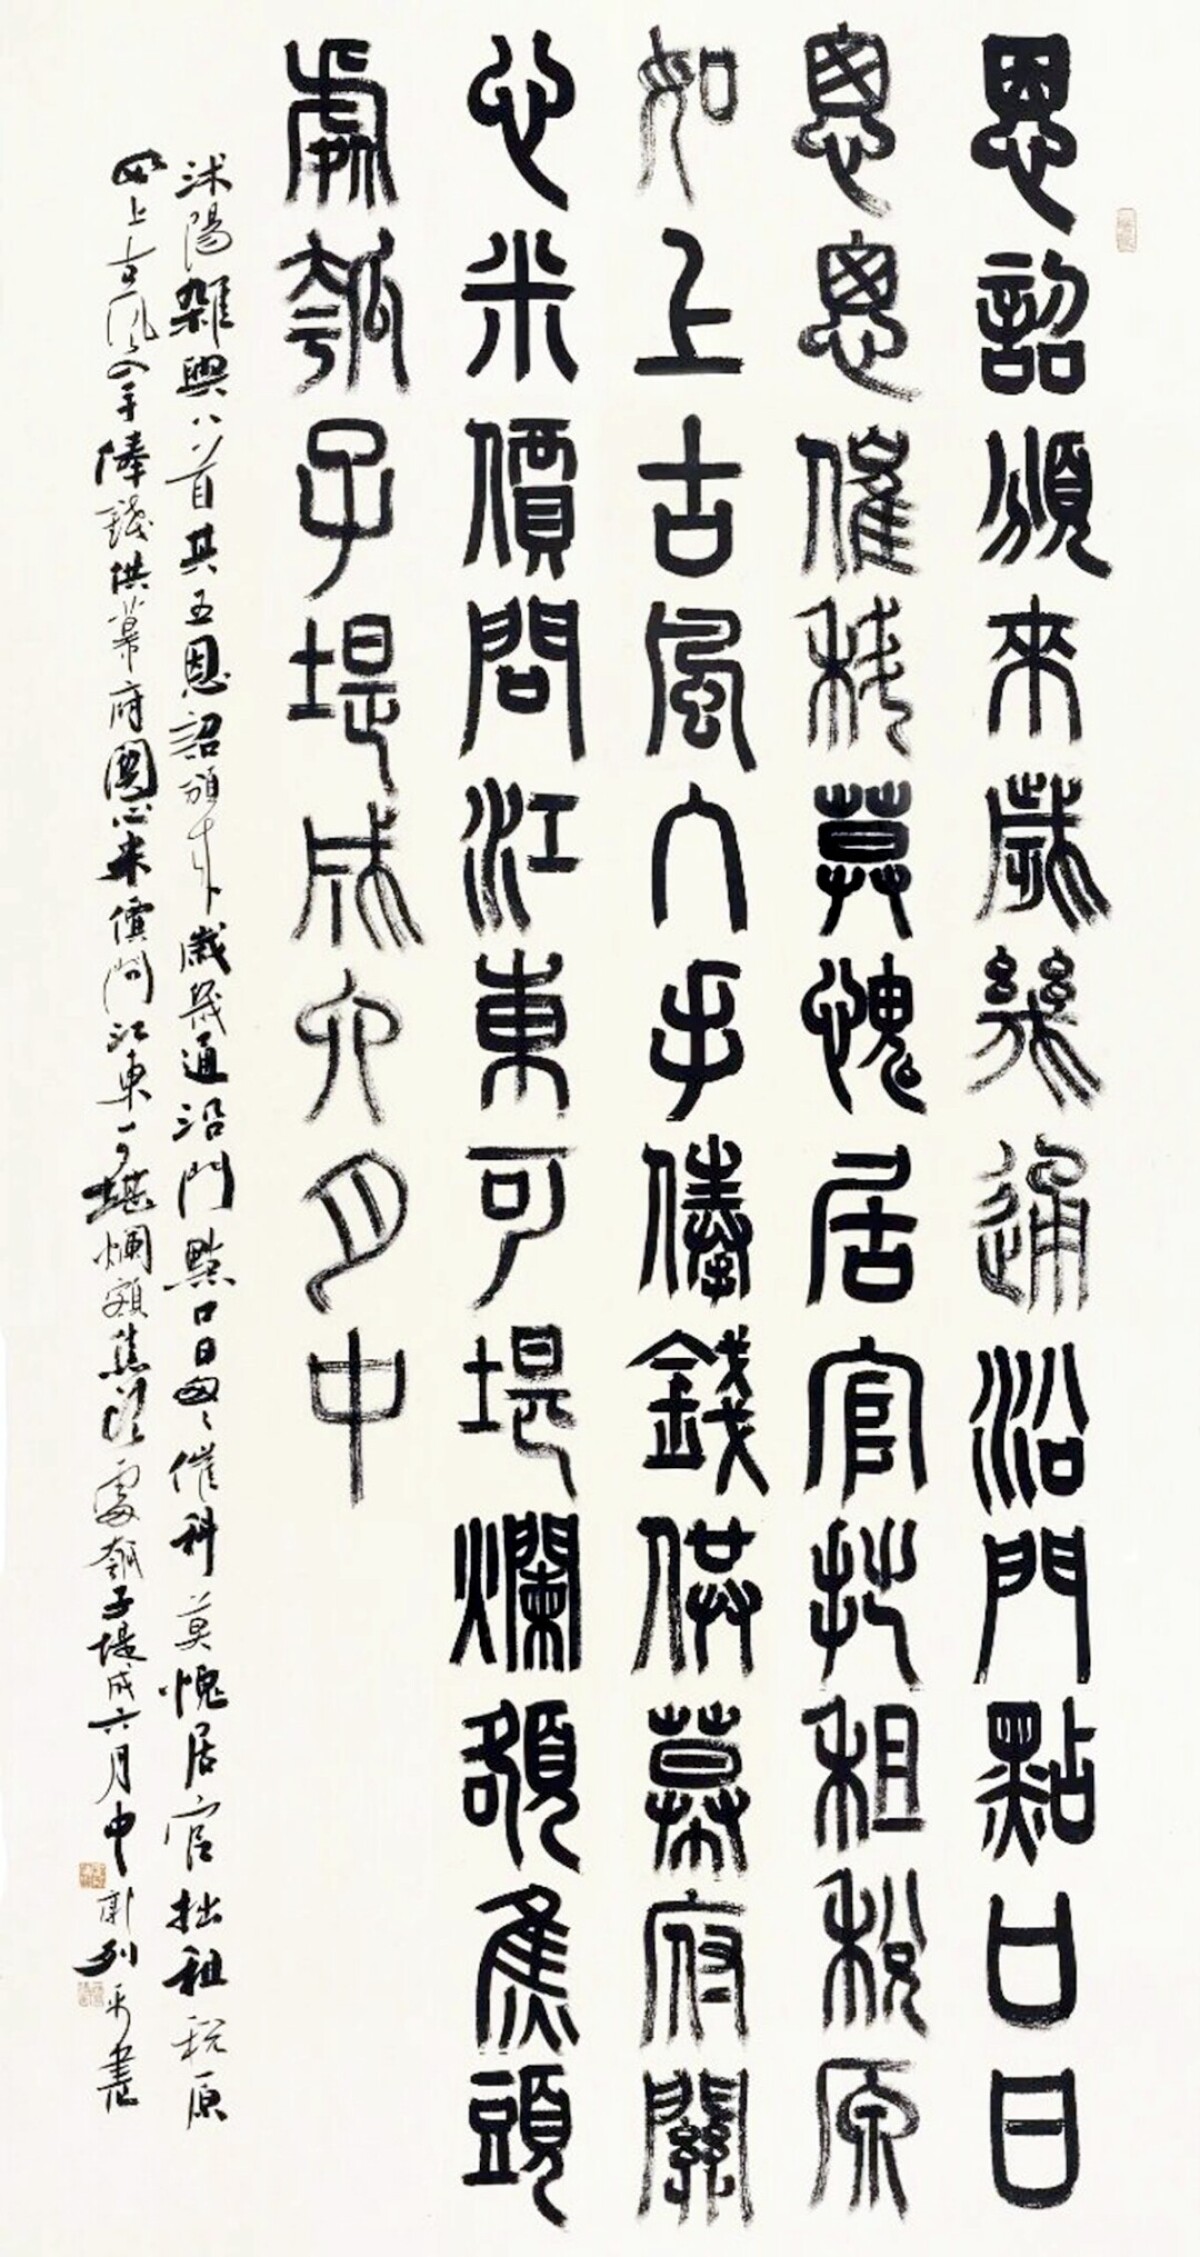 恩詔頒來歲幾通沿門點口日
悤悤催科莫愧居官拙租稅原
如上古風六手俸錢供幕府關
心米價問江東可堪爛額焦頭
處瓠子堤成六月中
沭陽雜興八首其五恩詔頒來歲幾通沿門點口日匆匆催科莫愧居官拙租稅原
如上古風六手俸錢供幕府關心米價問江東可堪爛額焦頭處瓠子堤成六月中郭列平書